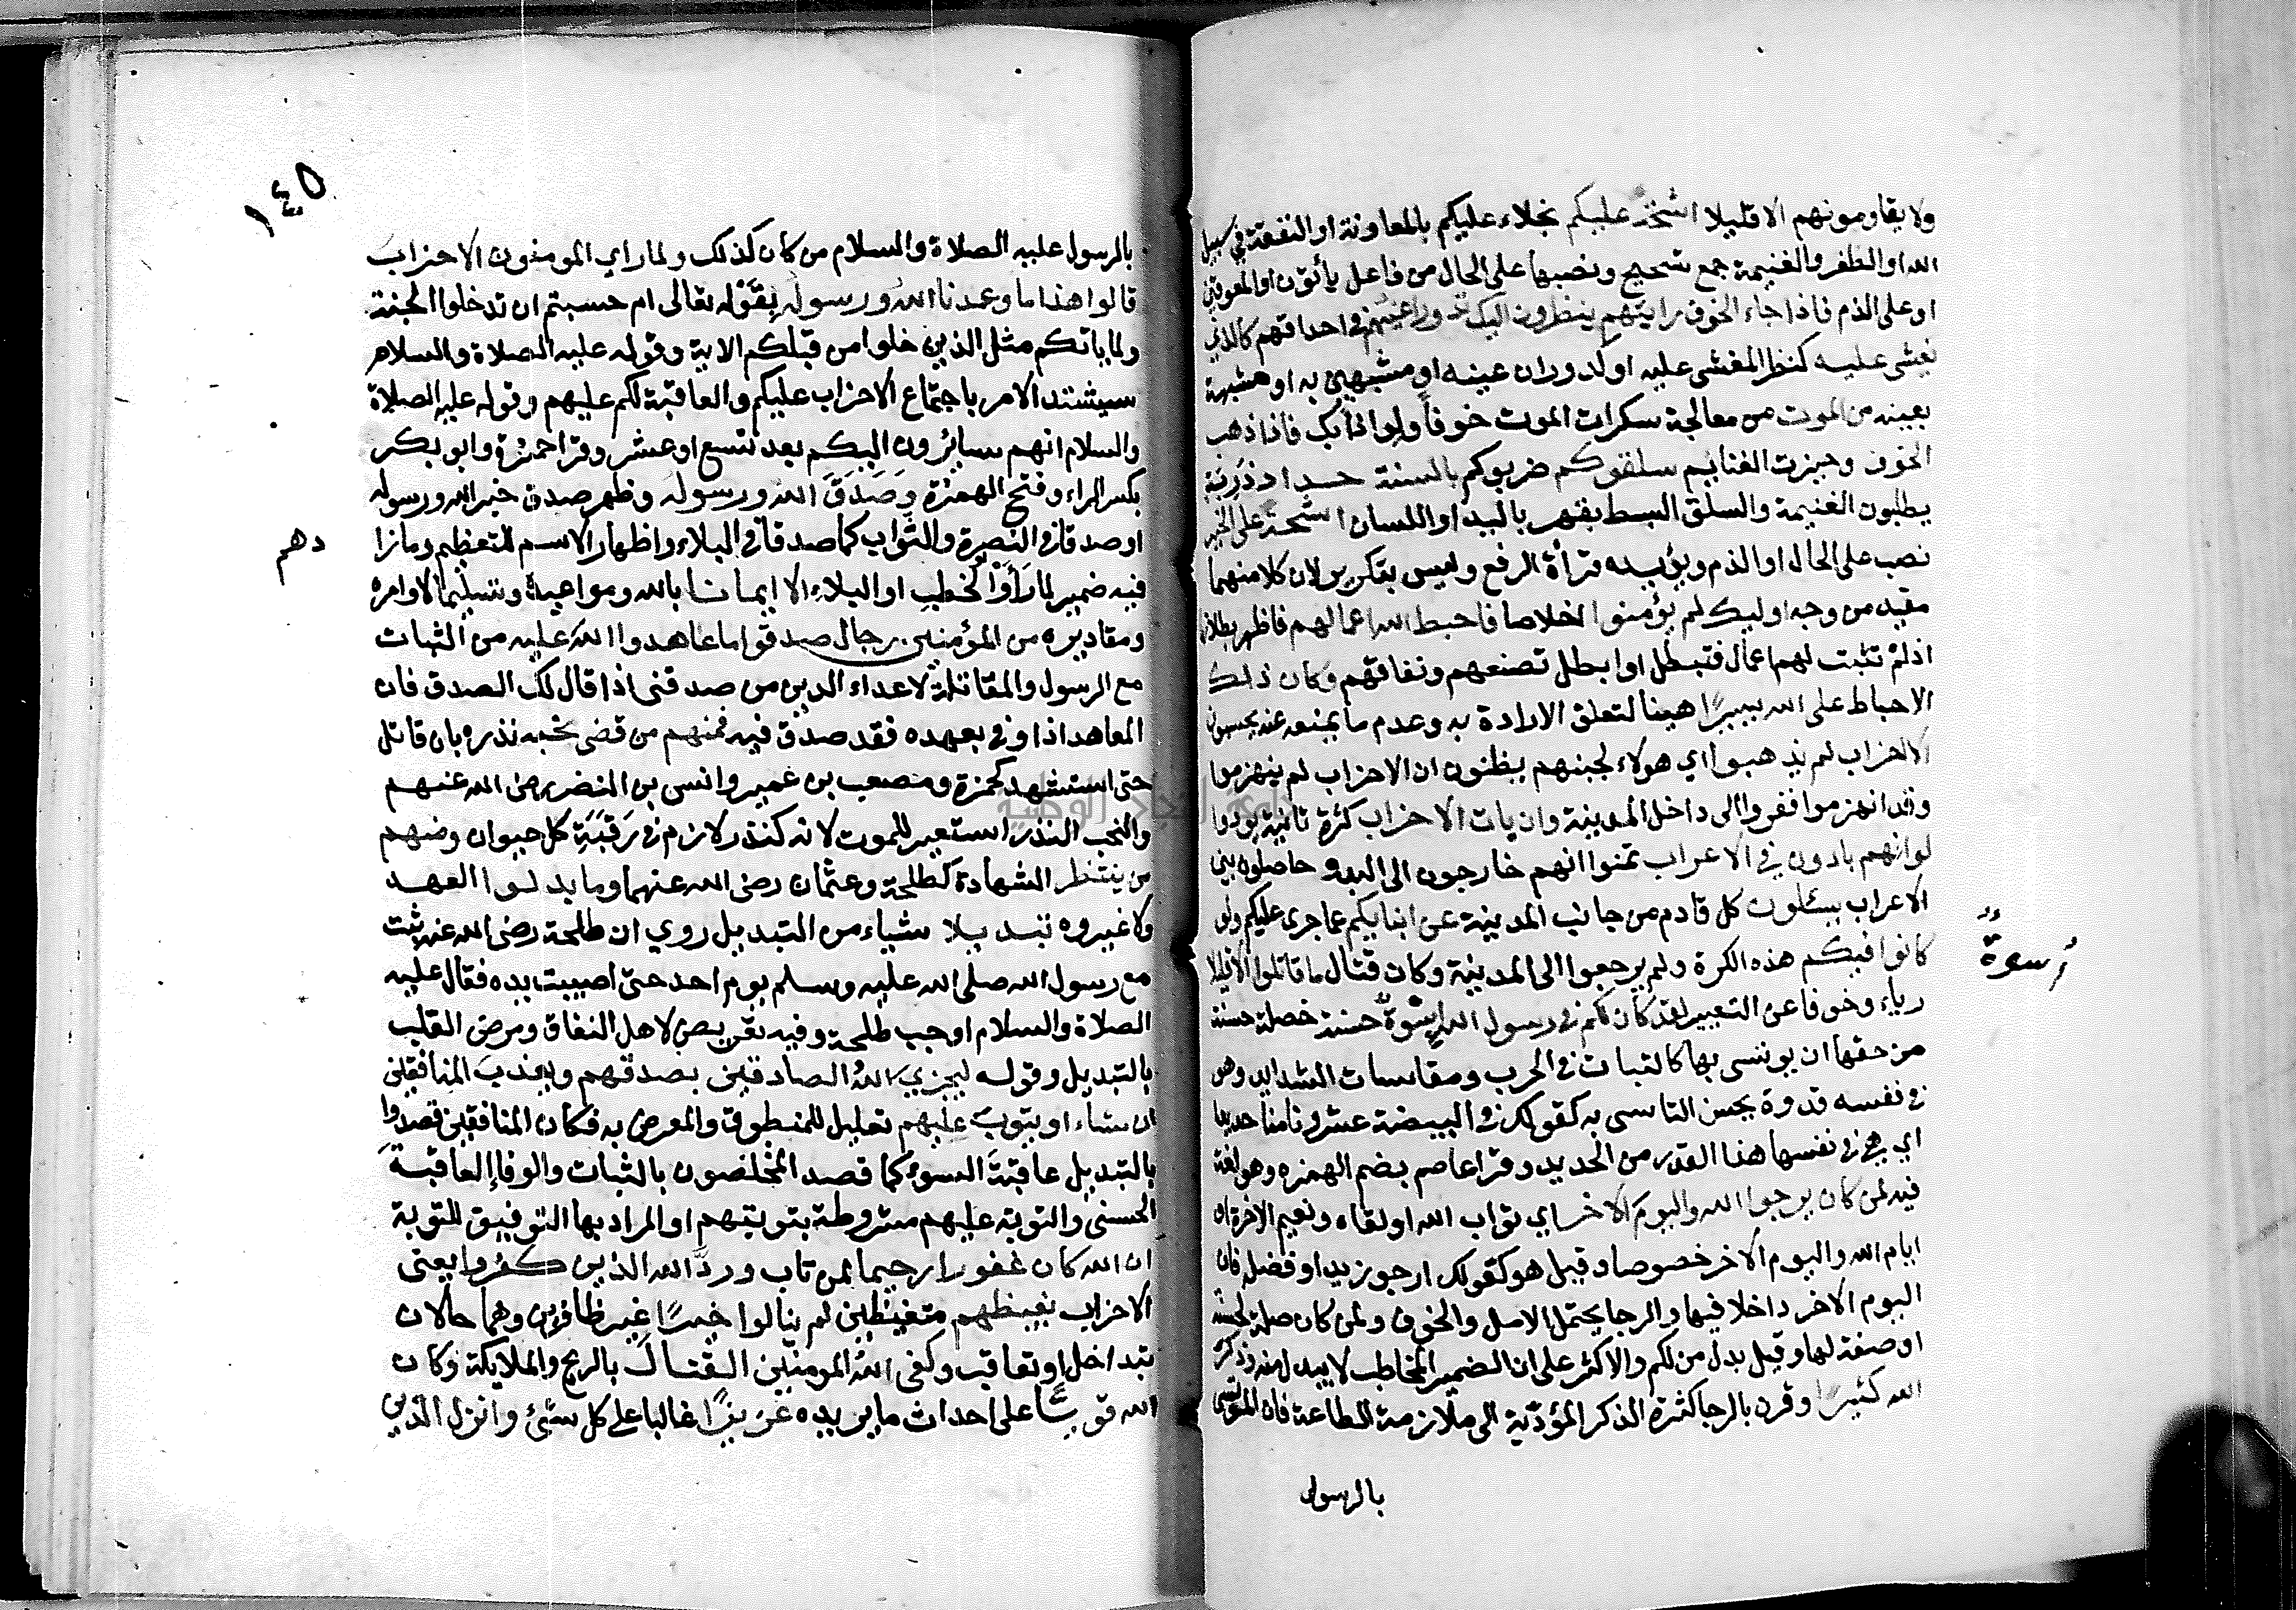 ولا يقاومونهم الا قليلا اشحة عليكم بخلاء عليكم بالمعاونة او النفقة في سبيل
الله او الظفر والغنيمة جمع شحيح ونصبها على الحال من فاعل يأتون او المعوقين
او على الذم فاذا جاء الخوف رايتهم ينظرون اليك تدور اعينهم في احداقهم كالذي
يغشى عليه كنظر المغشى عليه او كدوران عينه او مشبهين به او مشبهة
بعينه من الموت من معالجة سكرات الموت خوفا ولواذا بك فاذا ذهب
الخوف وحيزت الغنايم سلقوكم ضربوكم بالسنة حداد ذربة
يطلبون الغنيمة والسلق البسط بقهر باليد او اللسان اشحة على الخير
نصب على الحال او الذم ويؤيده قرأة الرفع وليس بتكرير لان كلا منهما
مقيد من وجه اوليك لم يؤمنوا اخلاصا فاحبط الله اعمالهم فاظهر بطلانها
اذ لم تثبت لهم اعمال فتبطل او ابطل تصنعهم ونفاقهم وكان ذلك
الاحباط على الله يسيرًا هينا لتعلق الارادة به وعدم ما يمنعه عنه يحسبون
الاحزاب لم يذهبوا اي هولاء لجبنهم يظنون ان الاحزاب لم ينهزموا
وقد انهزموا ففروا الى داخل المدينة وان يات الاحزاب كرة ثانية يودوا
لو انهم بادون في الاعراب تمنوا انهم خارجون الى البدو حاصلوه بين
الاعراب يسئلون كل قادم من جانب المدينة عن انبايكم عما جرى عليكم ولو
كانوا فيكم هذه الكرة ولم يرجعوا الى المدينة وكان قتال ما قاتلوا الا قليلا
رياء وخوفا عن التعيير لقد كان لكم في رسول الله اسوة حسنة خصلة حسنة
من حقها ان يوتسى بها كالثبات في الحرب ومقاسات الشدايد وهو
في نفسه قدوة يحسن التاسى به كقولك في البيضة عشرون منا حديدا
اي هي في نفسها هذا القدر من الحديد وقرا عاصم بضم الهمزه وهو لغة
فيه لمن كان يرجوا الله واليوم الاخر اي ثواب الله او لقاه ونعيم الاخرة او
ايام الله واليوم الاخر خصوصا وقيل هو كقولك ارجو زيدا وفضله فان
اليوم الاخر داخلا فيها والرجا يحتمل الامل والخوف ولمن كان صلة لحسنة
او صفة لها وقيل بدل من لكم والاكثر على ان الضمير المخاطب لا يبدل منه وذكر
الله كثيرًا وقرن بالرجا كثرة الذكر المؤدية الى ملازمة الطاعة فان المؤتسى
بالرسول
اُسوةٌ
١٤٥
بالرسول عليه الصلاة والسلام من كان كذلك ولما راي المومنون الاحزاب
قالوا هذا ما وعدنا الله ورسوله بقوله تعالى ام حسبتم ان تدخلوا الجنة
ولما ياتكم مثل الذين خلوا من قبلكم الاية وقوله عليه الصلاة والسلام
سيشتد الامر باجتماع الاحزاب عليكم والعاقبة لكم عليهم وقوله عليه الصلاة
والسلام انهم سايرون اليكم بعد تسع او عشر وقرا حمزة وابو بكر
بكسر الراء وفتح الهمزة وصدق الله ورسوله وظهر صدق خبر الله ورسوله
او صدقا في النصرة والثواب كما صدقا في البلاء واظهار الاسم للتعظيم وما زا
دهم
فيه ضمير لما رأوا لخطب او البلاء الا ايمانا بالله ومواعيده وتسليما لاوامره
ومقاديره من المؤمنين رجال صدقوا ما عاهدوا الله عليه من الثبات
مع الرسول والمقاتلة لاعداء الدين من صدقنى اذا قال لك الصدق فان
المعاهد اذا وفى بعهده فقد صدق فيه فمنهم من قضى نحبه نذره بان قاتل
حتى استشهد كحمزة ومصعب بن عمير وانس بن النضر رضى الله عنهم
والنحب النذر استعير للموت لانه كنذر لازم في رقبة كل حيوان ومنهم
من ينتظر الشهادة كطلحة وعثمان رضى الله عنهما وما بدلوا العهد
ولا غيروه تبديلا شياء من التبديل روي ان طلحة رضى الله عنه ثبت
مع رسول الله صلى الله عليه وسلم يوم احد حتى اصيبت يده فقال عليه
الصلاة والسلام اوجب طلحة وفيه تعريض لاهل النفاق ومرض القلب
بالتبديل وقوله ليجزي الله الصادقين بصدقهم ويعذب المنافقين
ان شاء او يتوب عليهم تعليل للمنطوق والمعرض به فكان المنافقين قصدوا
بالتبديل عاقبة السوء كما قصد المخلصون بالثبات والوفا العاقبة
الحسنى والتوبة عليهم مشروطة بتوبتهم او المراد بها التوفيق للتوبة
ان الله كان غفورا رحيما لمن تاب ورد الله الذين كفروا يعنى
الاحزاب بغيظهم متغيظين لم ينالوا خيرًا غير ظافرين وهما حالان
بتداخل او تعاقب وكفى الله المومنين القتال بالريح والملايكة وكان
الله قويًا على احداث ما يريده عزيزًا غالبا على كل شئ وانزل الذين